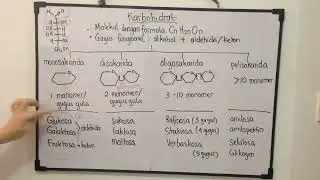 Karbohidrat
• Molekul dengan formula CnH2nOn
• Gugus fungsional : alkohol + aldehida/keton
monosakarida
disakarida
oligosakarida
polisakarida
1 monomer/
gugus gula
2 monomer/
gugus gula
3-10 monomer
>10 monomer
Glukosa
Galaktosa
aldehida
Fruktosa → keton
Sukrosa
Laktosa
Maltosa
Rafinosa (3 gugus)
Stakiosa (4 gugus)
Verbaskosa
(5 gugus)
amilosa
amilopektin
selulosa
Glikogen